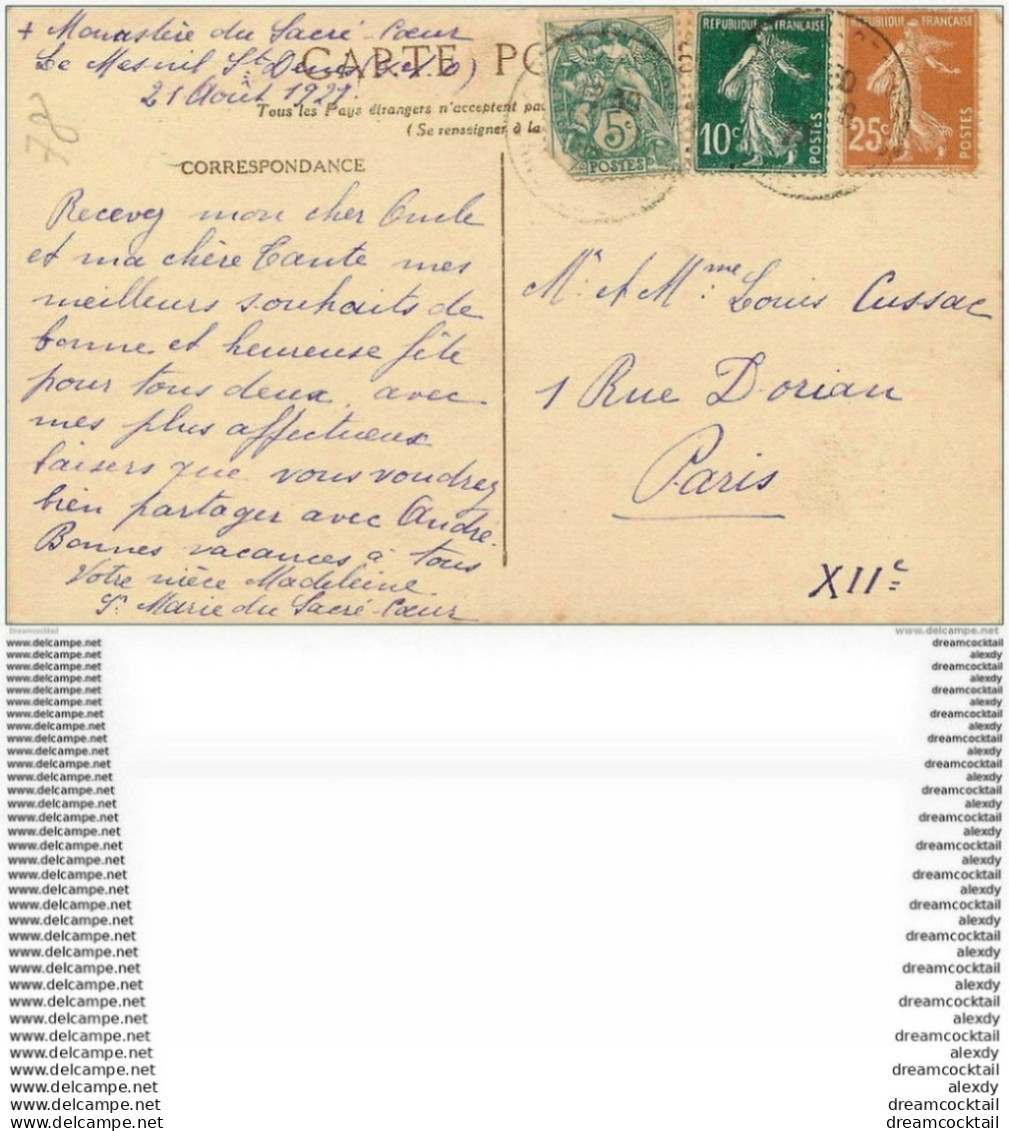 + Monastère du Sacré-Cœur
Le Mesnil St Denis (S.&O)
21 Août 1927.
78
CARTE PO
Tous les Pays étrangers n'acceptent pas
(Se renseigner à la
CORRESPONDANCE
5c
POSTES
REPUBLIQUE FRANÇAISE
10c
POSTES
REPUBLIQUE FRANÇAISE
25c
POSTES
Recevez mon cher Oncle
et ma chère Tante mes
meilleurs souhaits de
bonne et heureuse fête
pour tous deux, avec
mes plus affectueux
baisers que vous voudrez
bien partager avec André.
Bonnes vacances à tous
Votre nièce Madeleine
Sr Marie du Sacré-Cœur
Mr. et Mme. Louis Cussac
1 Rue Dorian
Paris
XIIe
Dreamcocktail
www.delcampe.net
www.delcampe.net dreamcocktail
www.delcampe.net alexdy
www.delcampe.net dreamcocktail
www.delcampe.net alexdy
www.delcampe.net dreamcocktail
www.delcampe.net alexdy
www.delcampe.net dreamcocktail
www.delcampe.net alexdy
www.delcampe.net dreamcocktail
www.delcampe.net alexdy
www.delcampe.net dreamcocktail
www.delcampe.net alexdy
www.delcampe.net dreamcocktail
www.delcampe.net alexdy
www.delcampe.net dreamcocktail
www.delcampe.net alexdy
www.delcampe.net dreamcocktail
www.delcampe.net alexdy
www.delcampe.net dreamcocktail
www.delcampe.net alexdy
www.delcampe.net dreamcocktail
www.delcampe.net alexdy
www.delcampe.net dreamcocktail
www.delcampe.net alexdy
www.delcampe.net dreamcocktail
www.delcampe.net alexdy
www.delcampe.net dreamcocktail
www.delcampe.net alexdy
www.delcampe.net dreamcocktail
www.delcampe.net alexdy
www.delcampe.net dreamcocktail
www.delcampe.net alexdy
www.delcampe.net dreamcocktail
www.delcampe.net alexdy
www.delcampe.net dreamcocktail
www.delcampe.net alexdy
www.delcampe.net dreamcocktail
www.delcampe.net alexdy
www.delcampe.net dreamcocktail
www.delcampe.net alexdy
www.delcampe.net dreamcocktail